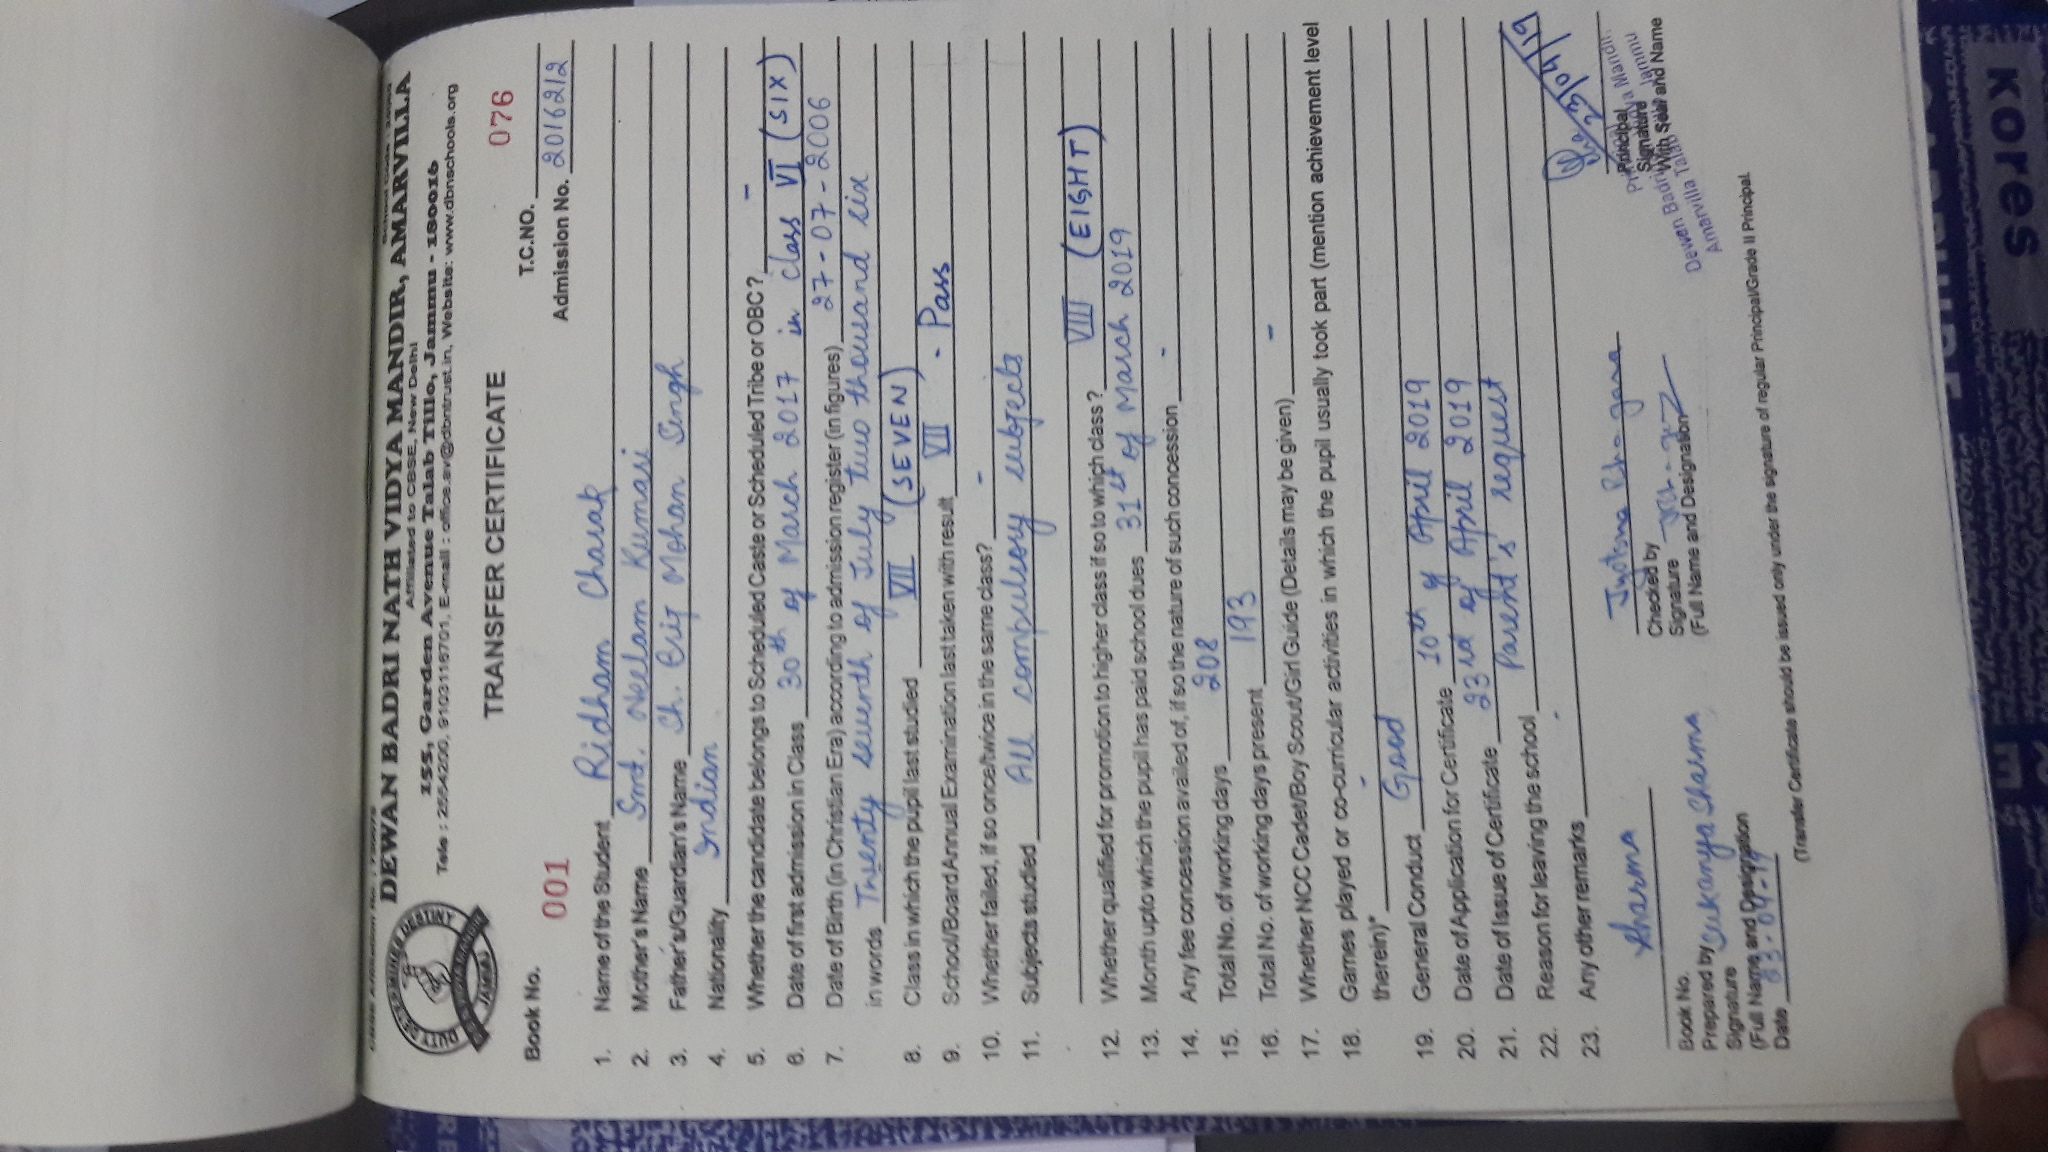 DEWAN BADRI NATH VIDYA MANDIR, AMARVILLA
Affiliated to CBSE, New Delhi
155, Garden Avenue Talab Tillo, Jammu - 180016
Tele : 2554200, 9103116701, E-mail : office.av@dbntrust.in, Website: www.dbnschools.org
TRANSFER CERTIFICATE
Book No. 001 T.C.NO. 076
Admission No. 2016212
1. Name of the Student Ridham Charak
2. Mother's Name Smt. Neelam Kumari
3. Father's/Guardian's Name Sh. Brij Mohan Singh
4. Nationality Indian
5. Whether the candidate belongs to Scheduled Caste or Scheduled Tribe or OBC? -
6. Date of first admission in Class 30th of March 2017 in class VI (SIX)
7. Date of Birth (in Christian Era) according to admission register (in figures) 27-07-2006
in words Twenty seventh of July two thousand six
8. Class in which the pupil last studied VII (SEVEN)
9. School/Board Annual Examination last taken with result VII - Pass
10. Whether failed, if so once/twice in the same class? -
11. Subjects studied All compulsory subjects
12. Whether qualified for promotion to higher class if so to which class? VIII (EIGHT)
13. Month upto which the pupil has paid school dues 31st of March 2019
14. Any fee concession availed of, if so the nature of such concession -
15. Total No. of working days 208
16. Total No. of working days present 193
17. Whether NCC Cadet/Boy Scout/Girl Guide (Details may be given) -
18. Games played or co-curricular activities in which the pupil usually took part (mention achievement level
therein)* -
19. General Conduct Good
20. Date of Application for Certificate 10th of April 2019
21. Date of Issue of Certificate 23rd of April 2019
22. Reason for leaving the school Parent's request
23. Any other remarks -
Sharma
Book No.
Prepared by Sukanya Sharma
Signature
(Full Name and Designation
Date 23-04-19
Jyotsna
Checked by
Signature
(Full Name and Designation
23/04/19
Principal
Signature
With Seal and Name
Dewan Badri
Amarvilla Talab Jammu
(Transfer Certificate should be issued only under the signature of regular Principal/Grade II Principal.
Kores